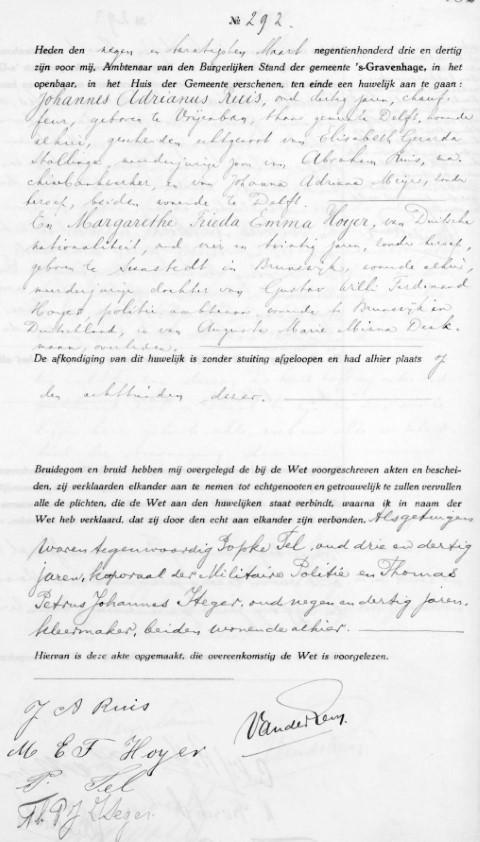 № 292.
Heden den negen en twintigsten Maart negentienhonderd drie en dertig
zijn voor mij, Ambtenaar van den Burgerlijken Stand der gemeente 's-Gravenhage, in het
openbaar, in het Huis der Gemeente verschenen, ten einde een huwelijk aan te gaan:
Johannes Adrianus Ruis, oud dertig jaren, chauf-
feur, geboren te Vrijenban, thans gemeente Delft, wonende
alhier, gescheiden echtgenoot van Elisabeth Gerarda
meerderjarige zoon van Abraham Ruis, ma-
chinebankwerker, en van Johanna Adriana Meijs, zonder
beroep, beiden wonende te Delft.
En Margarethe Frieda Emma Hoyer, van Duitsche
nationaliteit, oud vier en twintig jaren, zonder beroep,
geboren te in Brunswijk, wonende alhier,
meerderjarige dochter van Gustav Willi Ferdinand
Hoyer, politie ambtenaar, wonende te Brunswijk in
Duitschland, en van Auguste Marie Minna
overleden.
De afkondiging van dit huwelijk is zonder stuiting afgeloopen en had alhier plaats op
den achttienden dezer.
Bruidegom en bruid hebben mij overgelegd de bij de Wet voorgeschreven akten en beschei-
den, zij verklaarden elkander aan te nemen tot echtgenooten en getrouwelijk te zullen vervullen
alle de plichten, die de Wet aan den huwelijken staat verbindt, waarna ik in naam der
Wet heb verklaard, dat zij door den echt aan elkander zijn verbonden. Als getuigen
waren tegenwoordig Popke Tel, oud drie en dertig
jaren, korporaal der Militaire Politie en Thomas
Petrus Johannes Heger, oud negen en dertig jaren,
kleermaker, beiden wonende alhier.
Hiervan is deze akte opgemaakt, die overeenkomstig de Wet is voorgelezen.
J A Ruis
M E F Hoyer
P. Tel
Th. P J Heger